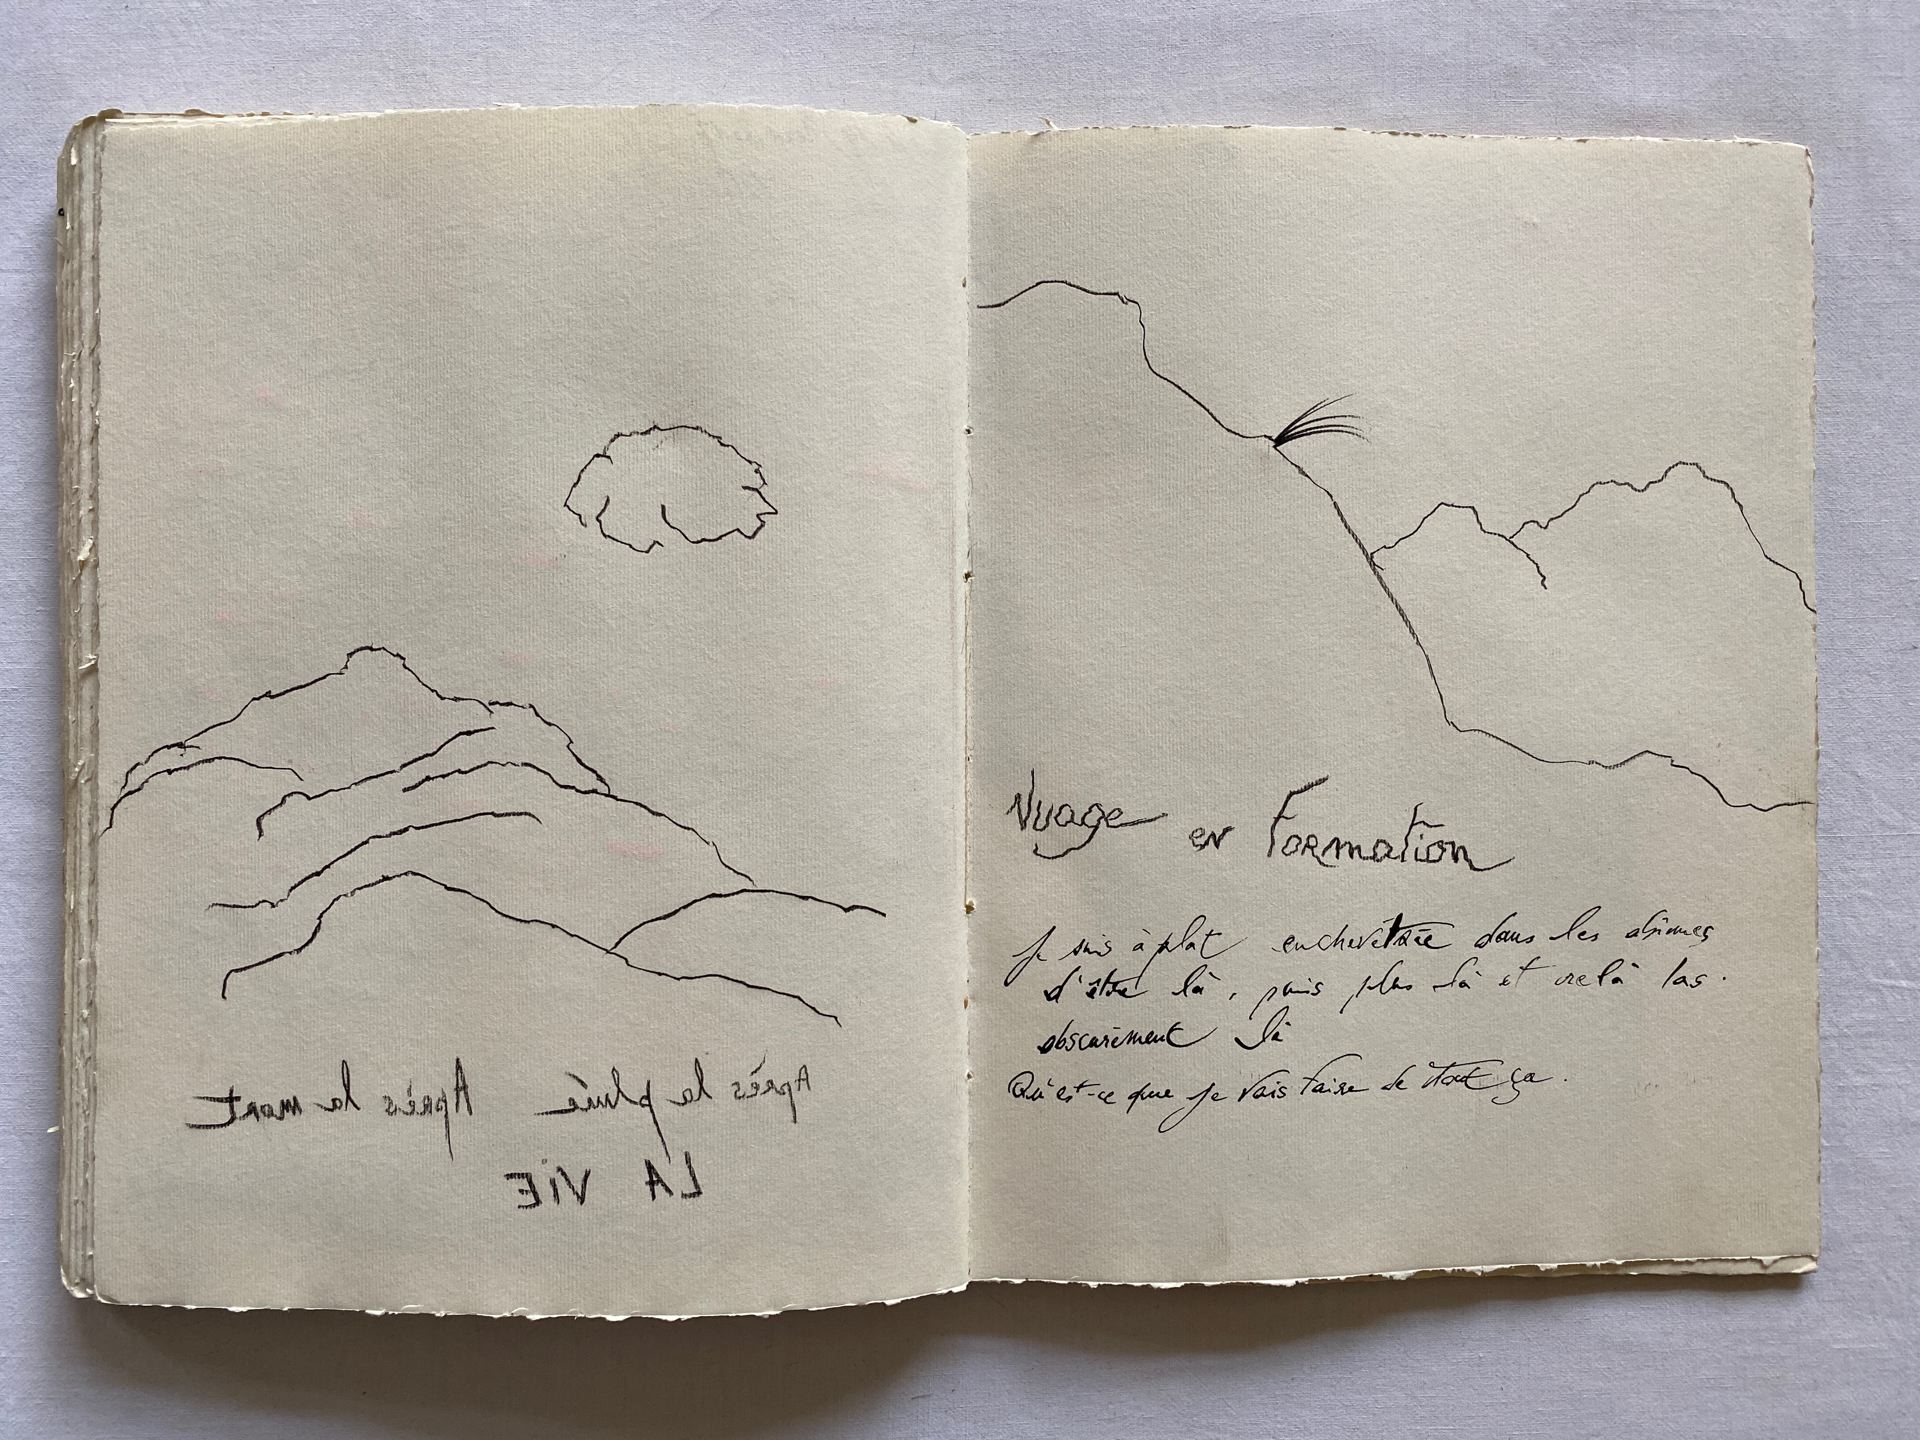 Après la pluie Après la mort
LA ViE
Nuage en Formation
Je suis à plat enchevêtrée dans les abîmes
d'être là, puis plus là et las.
obscurément là
Qu'est-ce que je vais faire de tout ça.